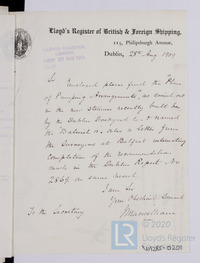 Lloyd's Register of British & Foreign Shipping.
115, Philipsburgh Avenue,
Dublin, 28th Aug 1909
Sir
Enclosed please find the Plan
of Pumping Arrangements, as carried out
in the new steamer recently built here
by the Dublin Dockyard Co & named
also a letter from
the Surveyors at Belfast intimating
completion of the recommendations
made in the Dublin Report No
on same vessel.
I am Sir
Your Obedient Servant
To the Secretary
© 2020
Lloyd's Register